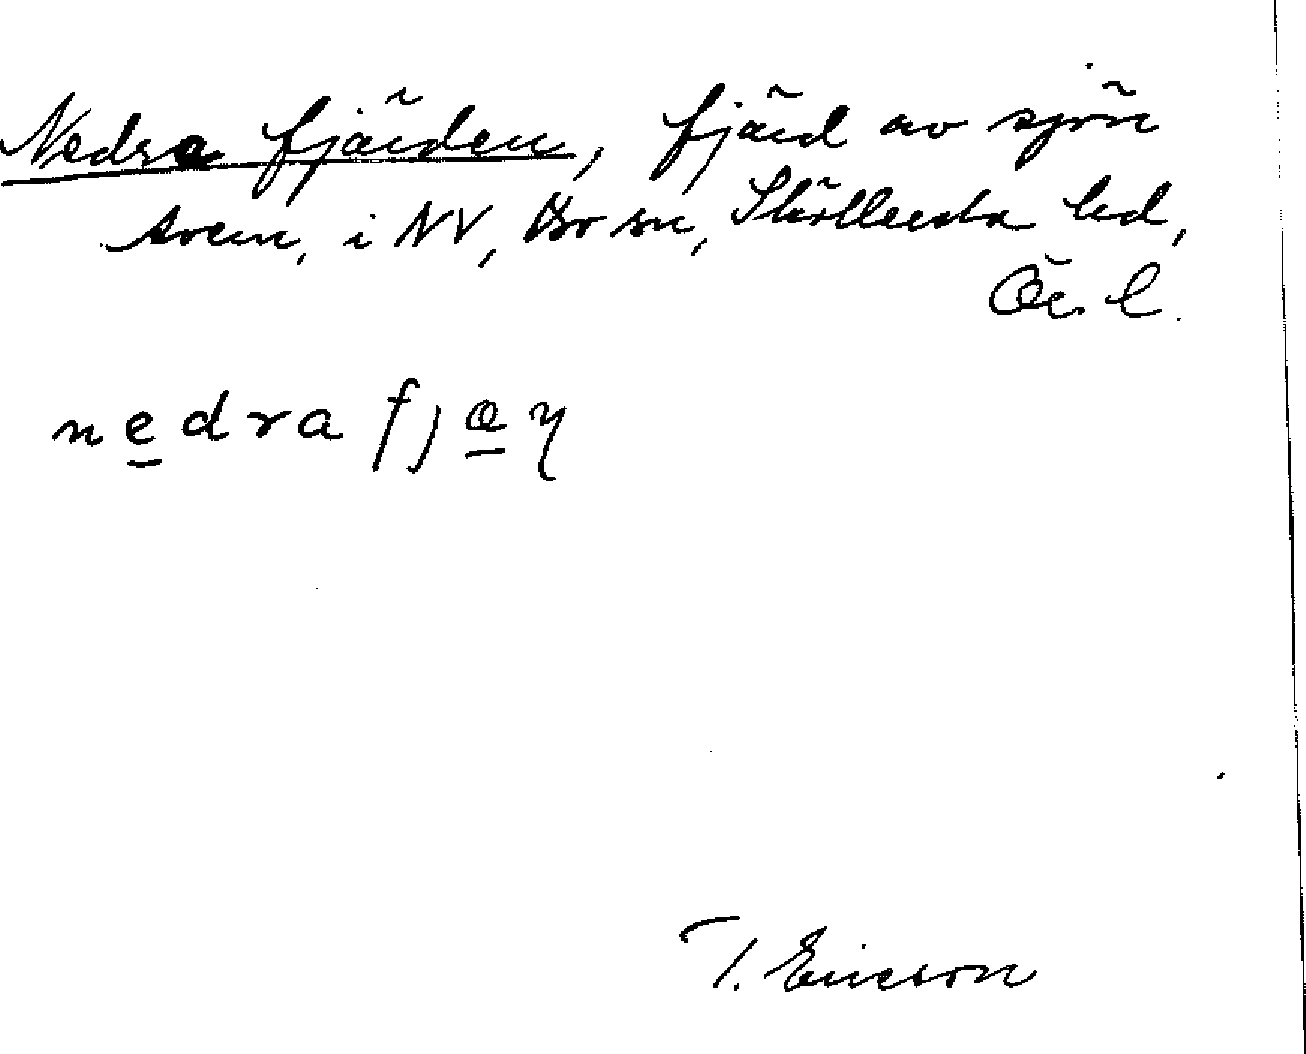 Nedra fjärden, fjärd av sjön
Avern, i NV, Bo sn, Sköllersta hd,
Ör. l.
nedra fjæɳ
T. Ericson